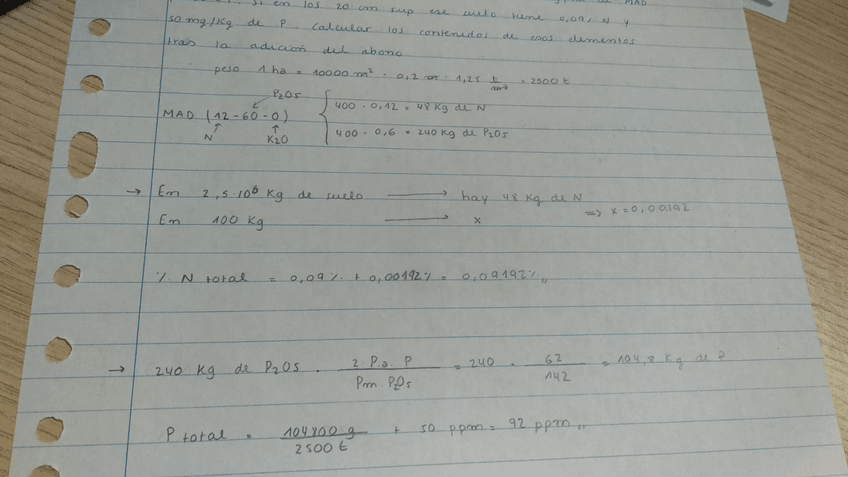 si en los 20 cm sup ese suelo tiene 0,09% N y
50 mg/Kg de P. Calcular los contenidos de esos elementos
tras la adición del abono
peso 1 ha = 10000 m² · 0,2 m · 1,25 t/m³ = 2500 t
P2O5
MAD (12-60-0)
N K2O
400 · 0,12 = 48 Kg de N
400 · 0,6 = 240 Kg de P2O5
→ En 2,5·10⁶ Kg de suelo → hay 48 Kg de N
En 100 Kg → x
=> x = 0,00192
% N total = 0,09% + 0,00192% = 0,09192%,,
→ 240 Kg de P2O5 · 2 · P.a. P / Pm. P2O5 = 240 · 62/142 = 104,8 Kg de P
P total = 104800 g / 2500 t + 50 ppm = 92 ppm,,